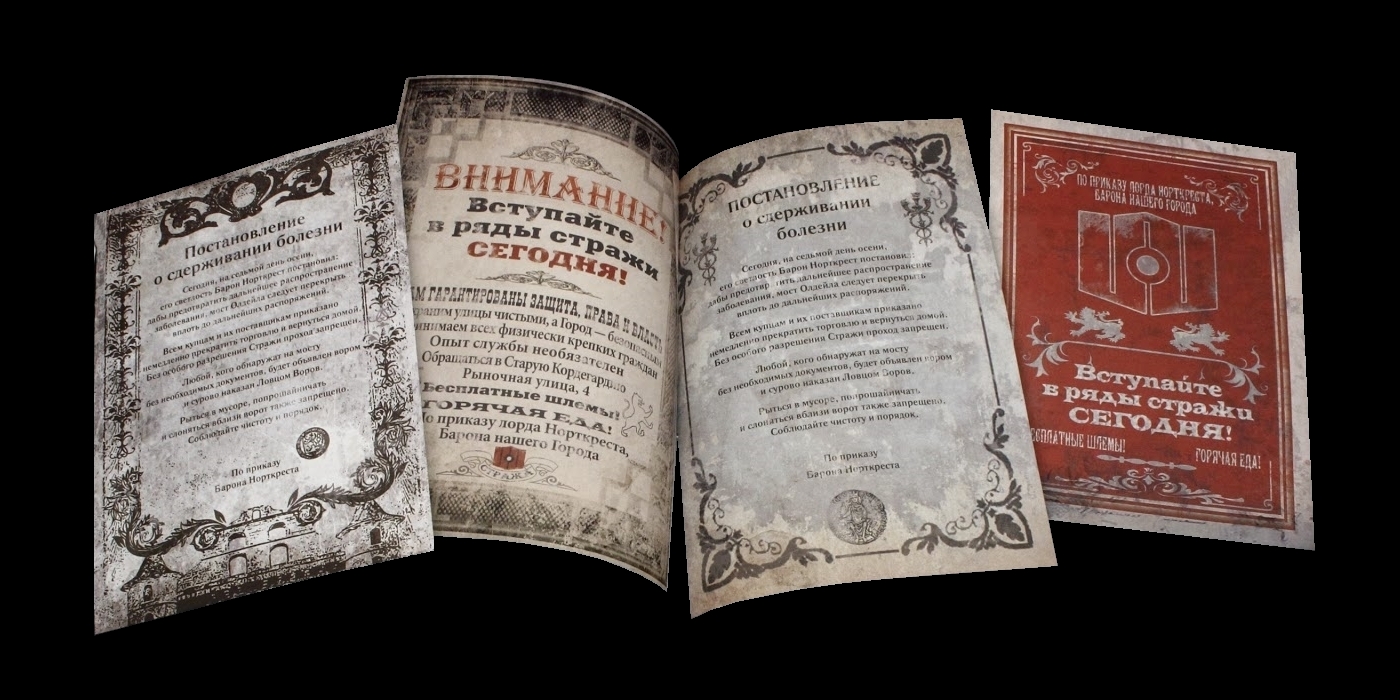 Постановление
о сдерживании болезни
Сегодня, на седьмой день осени,
его светлость Барон Норткрест постановил:
дабы предотвратить дальнейшее распространение
заболевания, мост Олдейла следует перекрыть
вплоть до дальнейших распоряжений.
Всем купцам и их поставщикам приказано
немедленно прекратить торговлю и вернуться домой.
Без особого разрешения Стражи проход запрещен.
Любой, кого обнаружат на мосту
без необходимых документов, будет объявлен вором
и сурово наказан Ловцом Воров.
Рыться в мусоре, попрошайничать
и слоняться вблизи ворот также запрещено.
Соблюдайте чистоту и порядок.
По приказу
Барона Норткреста
ВНИМАНИЕ!
Вступайте
в ряды стражи
СЕГОДНЯ!
АМ ГАРАНТИРОВАНЫ ЗАЩИТА, ПРАВА И ВЛАСТЬ
раним улицы чистыми, а Город — безопасным
инимаем всех физически крепких граждан
Опыт службы необязателен
Обращаться в Старую Кордегардию
Рыночная улица, 4
Бесплатные шлемы!
ГОРЯЧАЯ ЕДА!
По приказу лорда Норткреста,
Барона нашего Города
СТРАЖА
ПОСТАНОВЛЕНИЕ
о сдерживании
болезни
Сегодня, на седьмой день осени,
его светлость Барон Норткрест постановил:
дабы предотвратить дальнейшее распространение
заболевания, мост Олдейла следует перекрыть
вплоть до дальнейших распоряжений.
Всем купцам и их поставщикам приказано
немедленно прекратить торговлю и вернуться домой.
Без особого разрешения Стражи проход запрещен.
Любой, кого обнаружат на мосту
без необходимых документов, будет объявлен вором
и сурово наказан Ловцом Воров.
Рыться в мусоре, попрошайничать
и слоняться вблизи ворот также запрещено.
Соблюдайте чистоту и порядок.
По приказу
Барона Норткреста
ПО ПРИКАЗУ ЛОРДА НОРТКРЕСТА,
БАРОНА НАШЕГО ГОРОДА
Вступайте
в ряды стражи
СЕГОДНЯ!
БЕСПЛАТНЫЕ ШЛЕМЫ!
ГОРЯЧАЯ ЕДА!